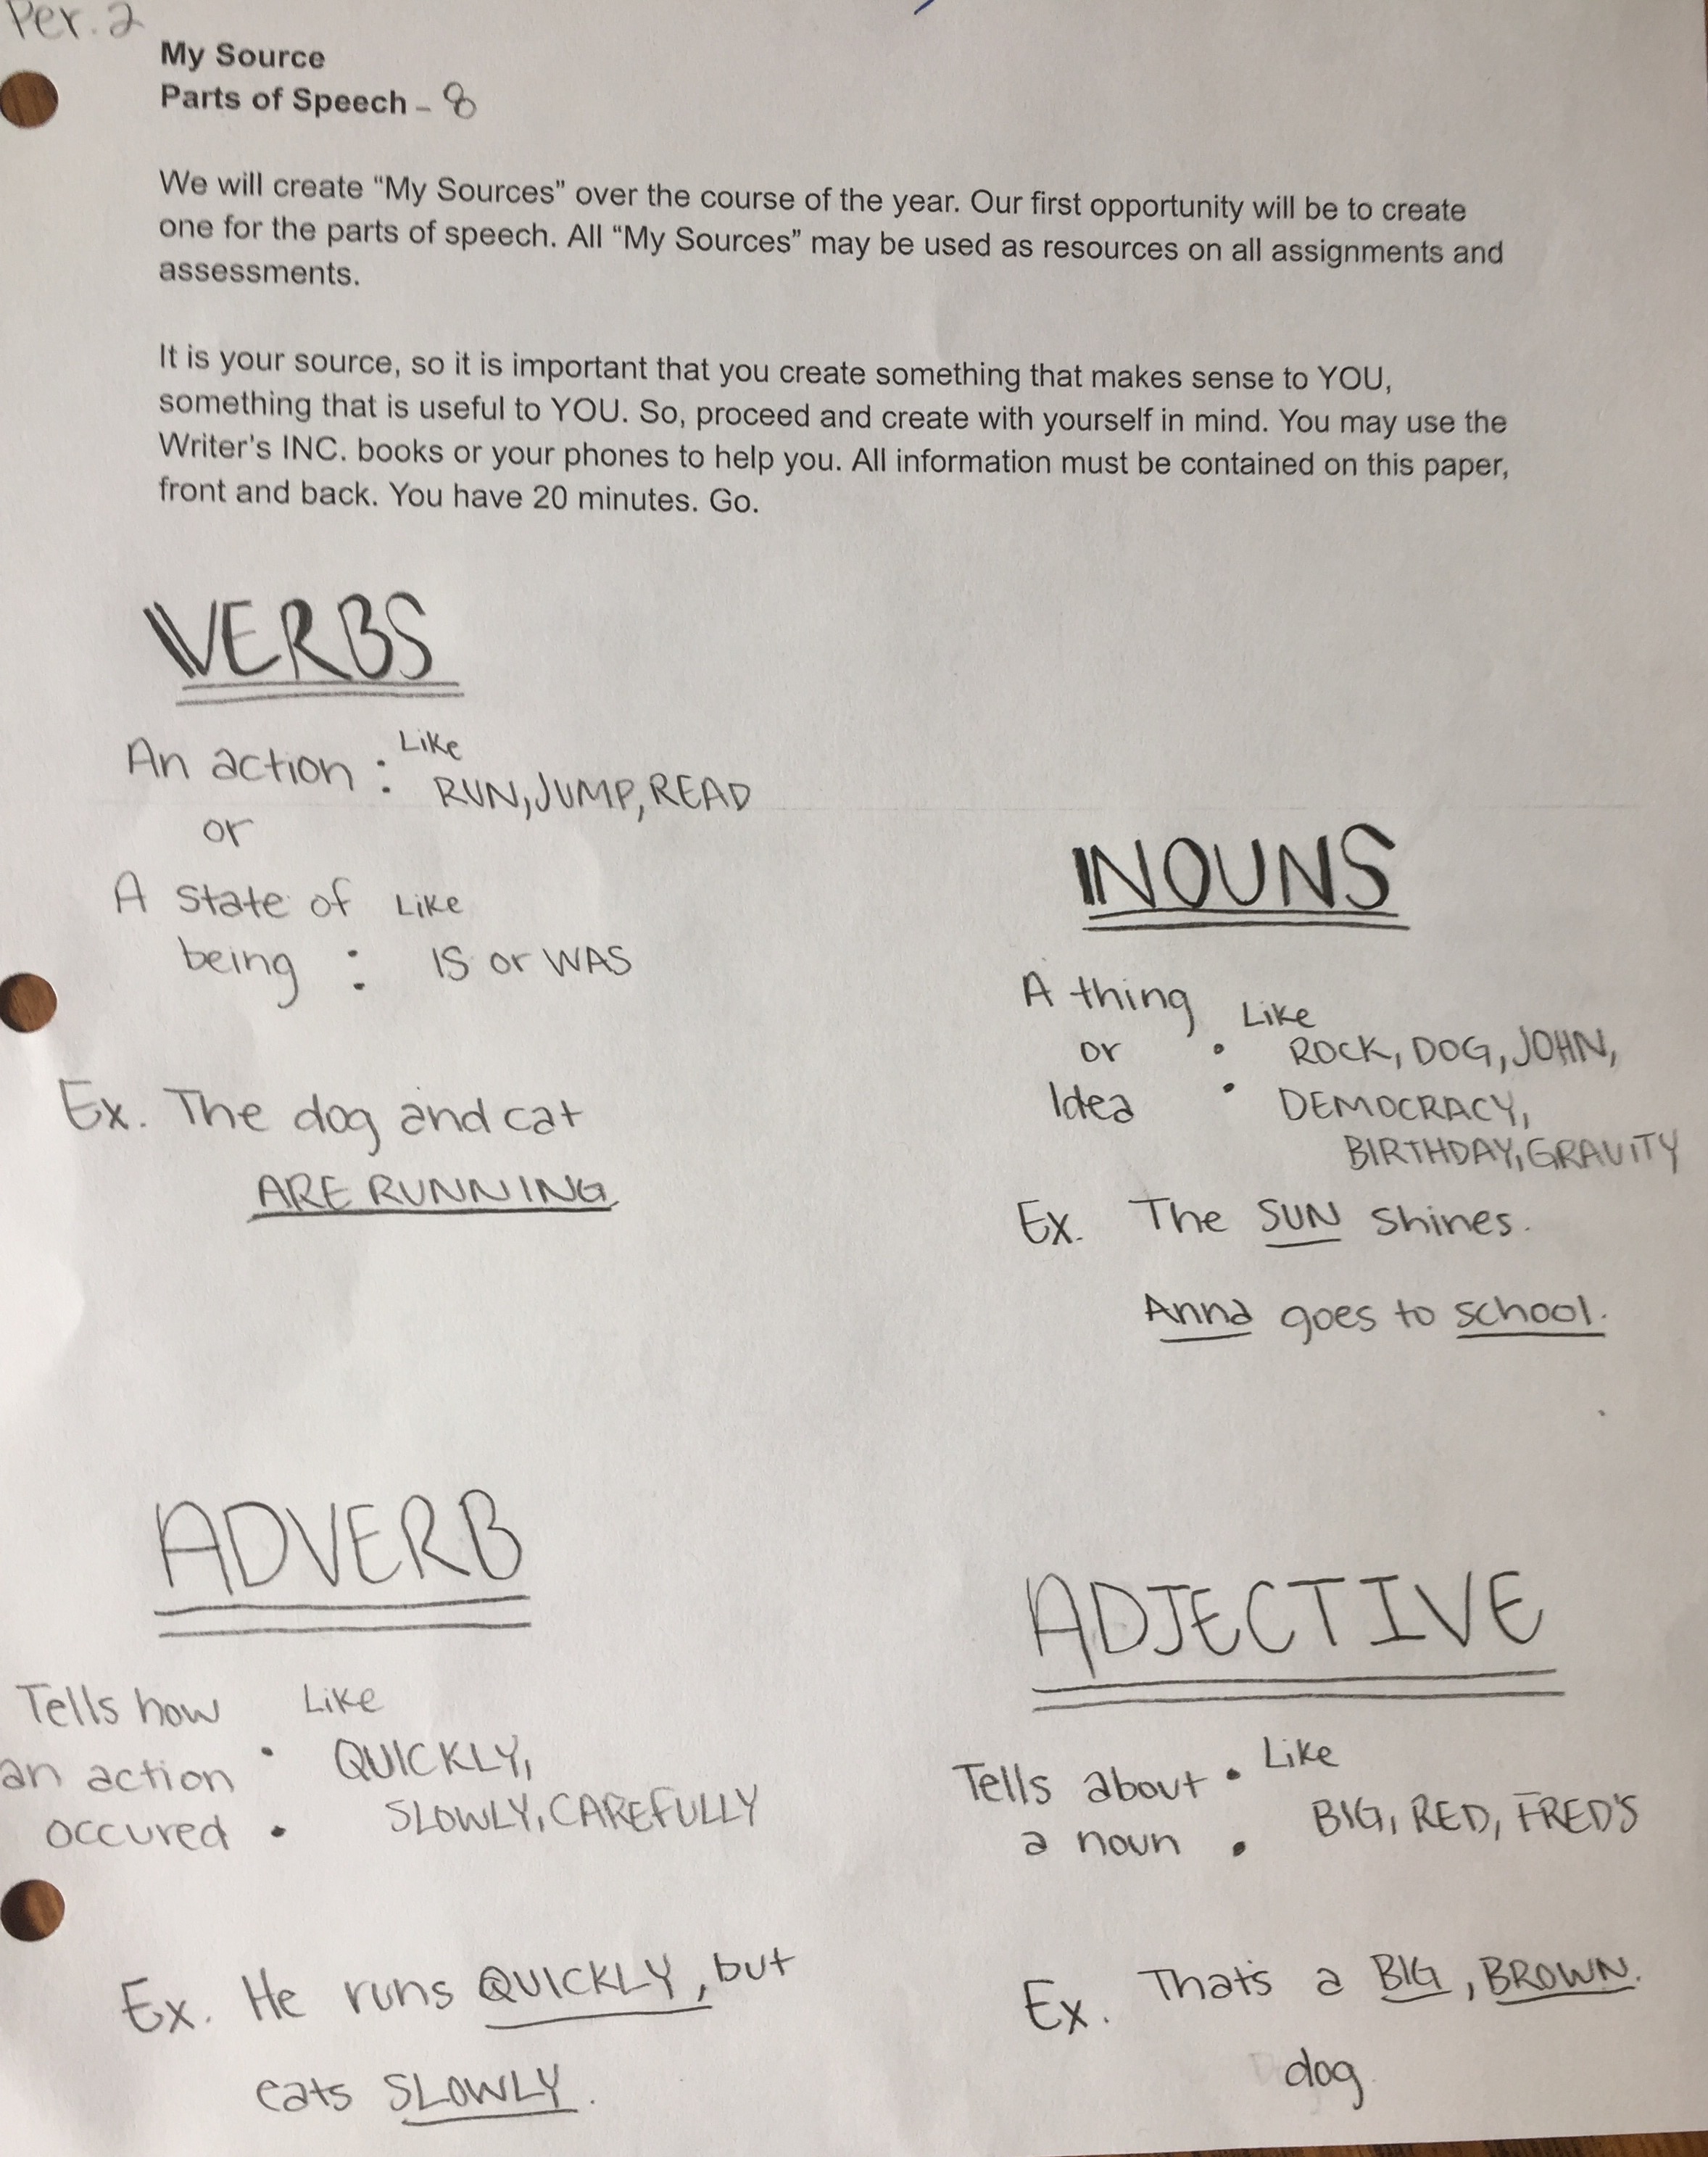 Per. 2
My Source
Parts of Speech - 8
We will create “My Sources” over the course of the year. Our first opportunity will be to create
one for the parts of speech. All “My Sources” may be used as resources on all assignments and
assessments.
It is your source, so it is important that you create something that makes sense to YOU,
something that is useful to YOU. So, proceed and create with yourself in mind. You may use the
Writer's INC. books or your phones to help you. All information must be contained on this paper,
front and back. You have 20 minutes. Go.
VERBS
An action : Like
RUN, JUMP, READ
or
A state of Like
being : IS or WAS
Ex. The dog and cat
ARE RUNNING
NOUNS
A thing Like
or : ROCK, DOG, JOHN,
Idea DEMOCRACY,
BIRTHDAY, GRAVITY
Ex. The SUN shines.
Anna goes to school.
ADVERB
Tells how Like
an action : QUICKLY,
occured SLOWLY, CAREFULLY
Ex. He runs QUICKLY, but
eats SLOWLY.
ADJECTIVE
Tells about : Like
a noun BIG, RED, FRED'S
Ex. That's a BIG, BROWN.
dog